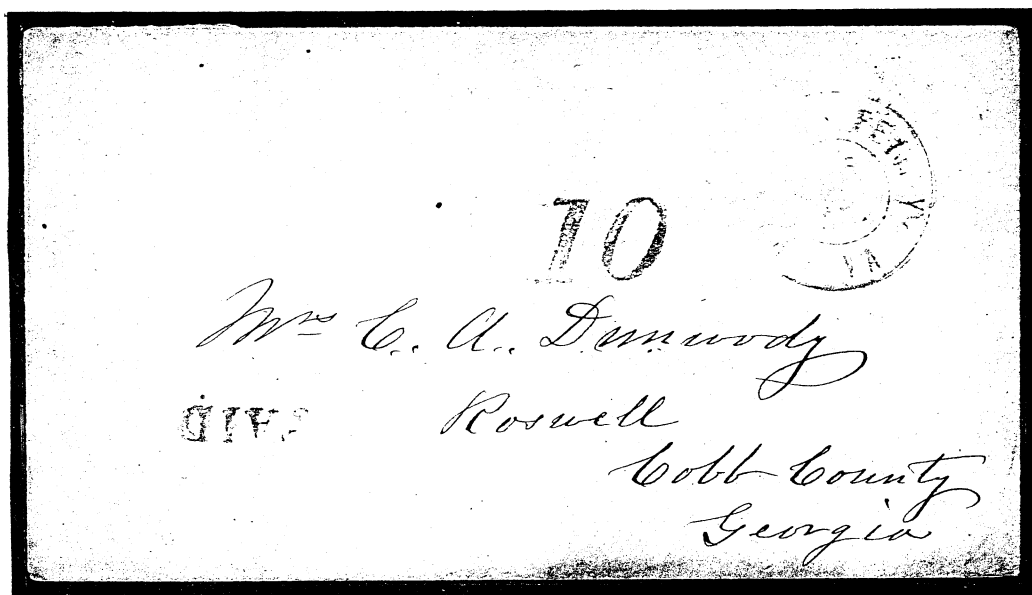 10
VA
Mrs C. A. Dunwody
PAID
Roswell
Cobb County
Georgia